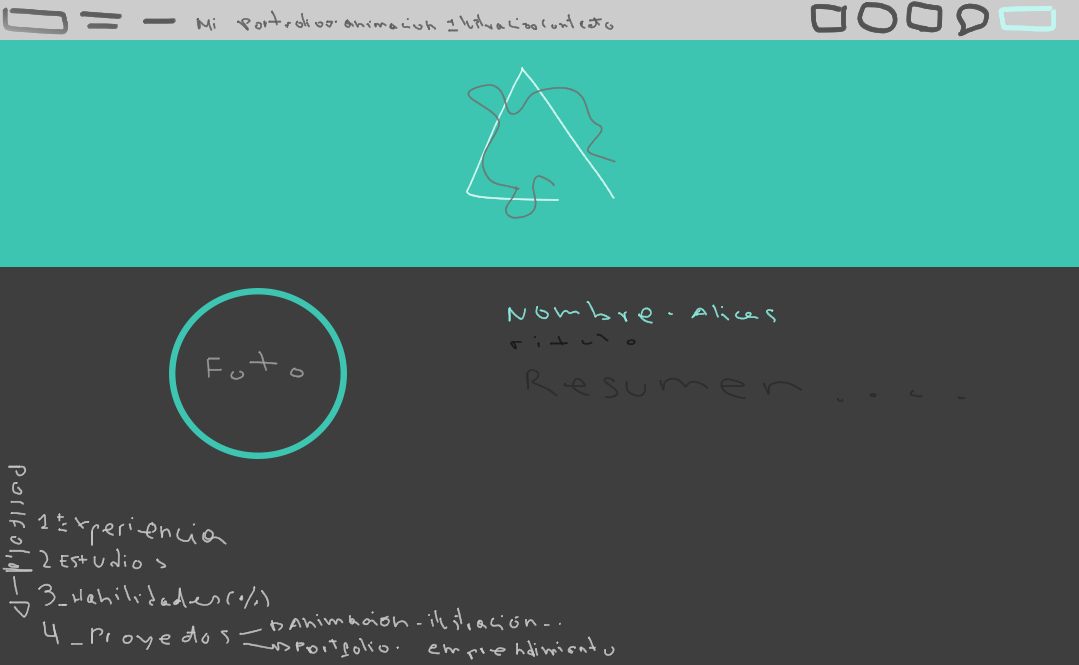 Mi Portfolios. animacion ilustracion contacto
Nombre. Alicas
Titulo
Foto
Resumen....
Portfolio
1 Experiencia
2 Estudios
3_Habilidades(%)
4_Proyectos
Animación-ilustración-..
Portfolio. emprehdimiento